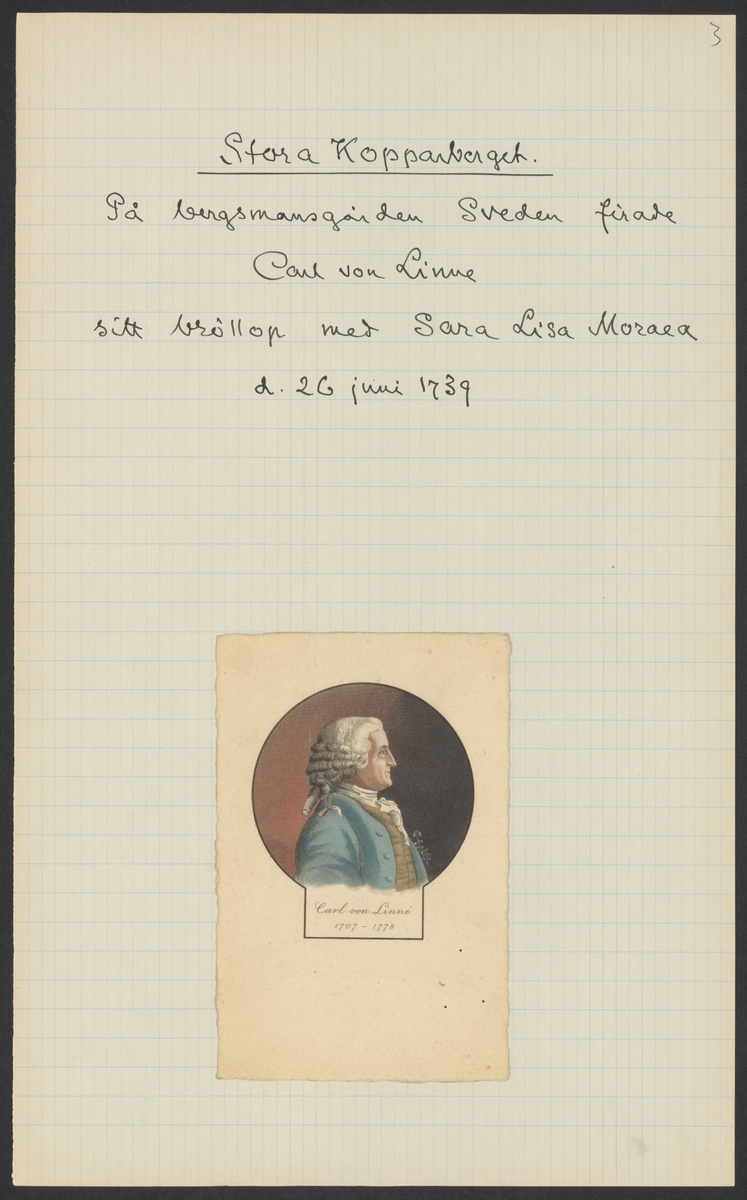 3
Stora Kopparberget.
På bergsmansgården Sveden firade
Carl von Linne
sitt bröllop med Sara Lisa Moraea
d. 26 juni 1739
Carl von Linné
1707 – 1778